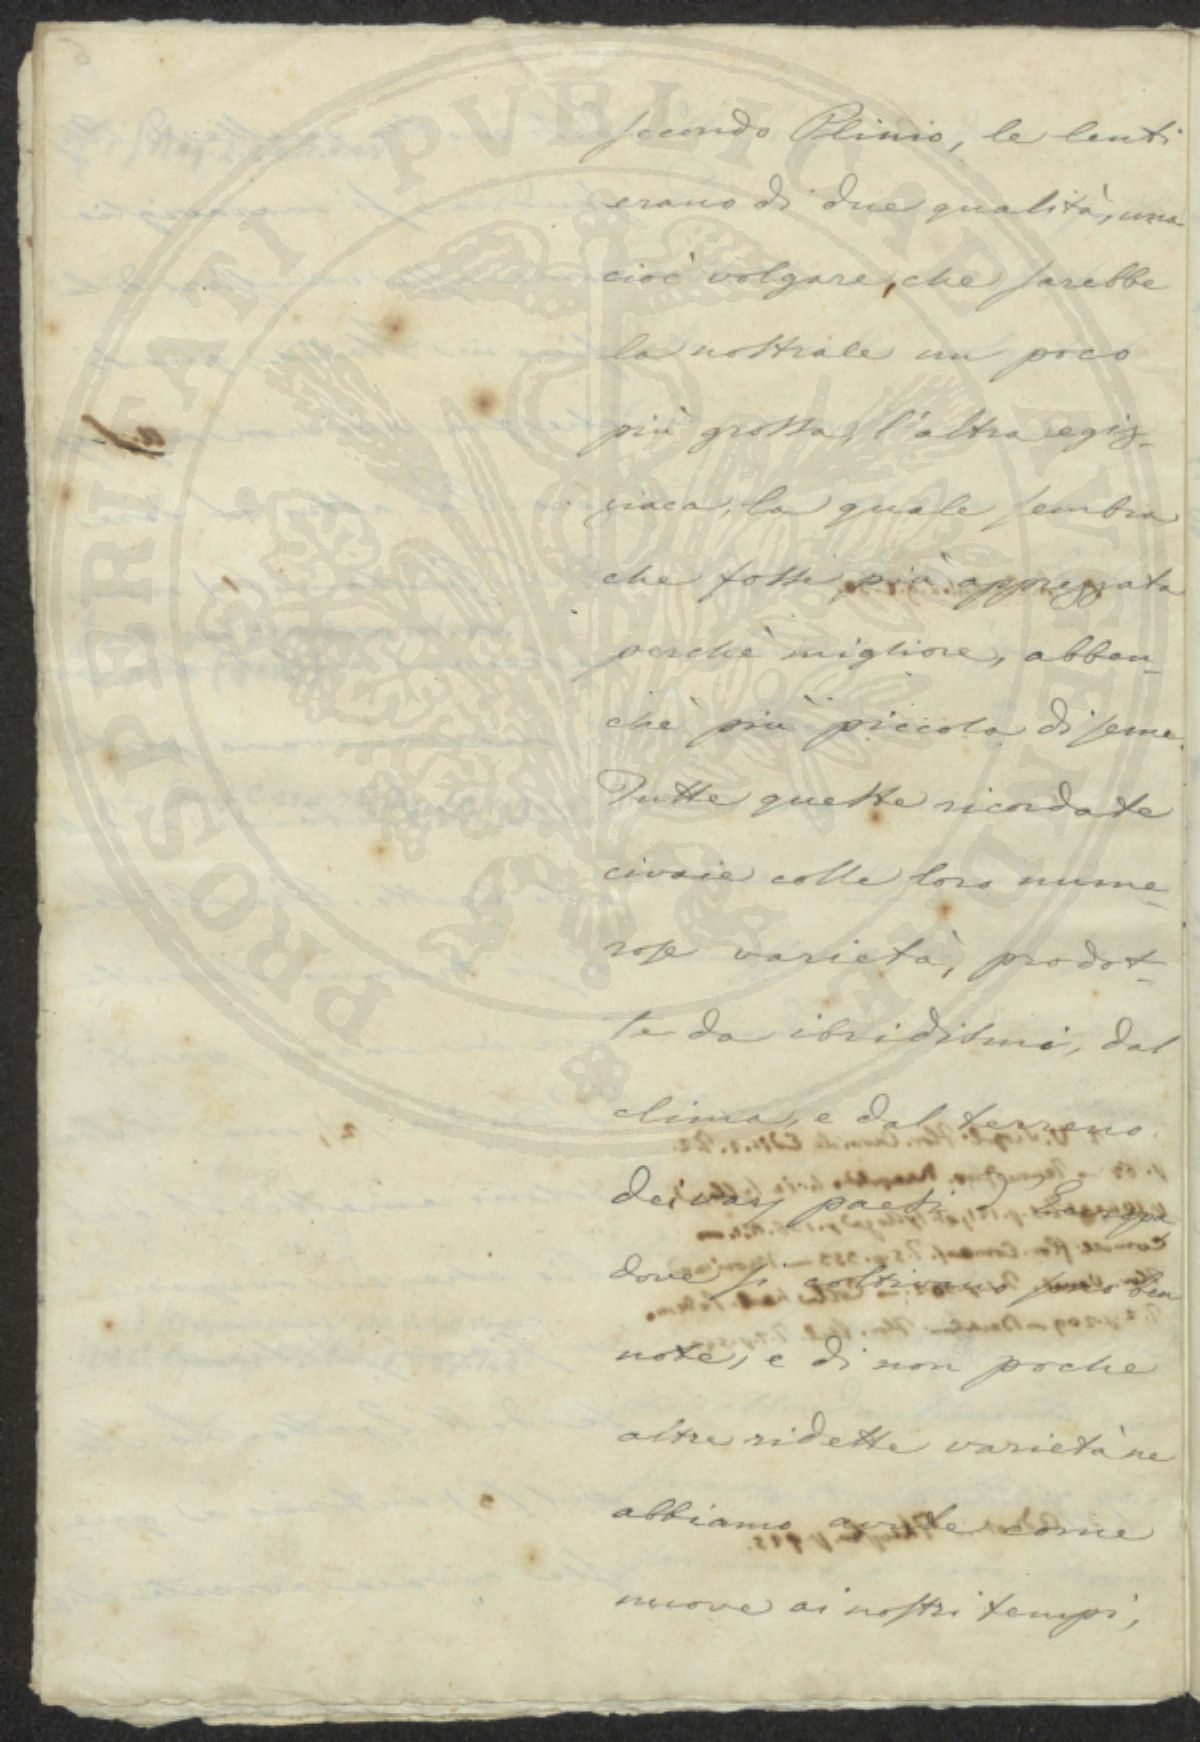 secondo Plinio, le lenti
erano di due qualità, una
cioè volgare, che sarebbe
la nostrale un poco
più grossa, l'altra egiz-
ziaca, la quale sembra
che fosse più apprezzata
perchè migliore, abben-
chè più piccola di seme.
Tutte queste ricordate
civaie colle loro nume-
rose varietà, prodot-
te da ibridismi, dal
clima, e dal terreno
dei varj paesi d'Europa
dove si coltivano sono ben
note, e di non poche
altre ridette varietà ne
abbiamo avute come
nuove ai nostri tempi,
PROSPERITATI PVBLICAE AVGENDAE